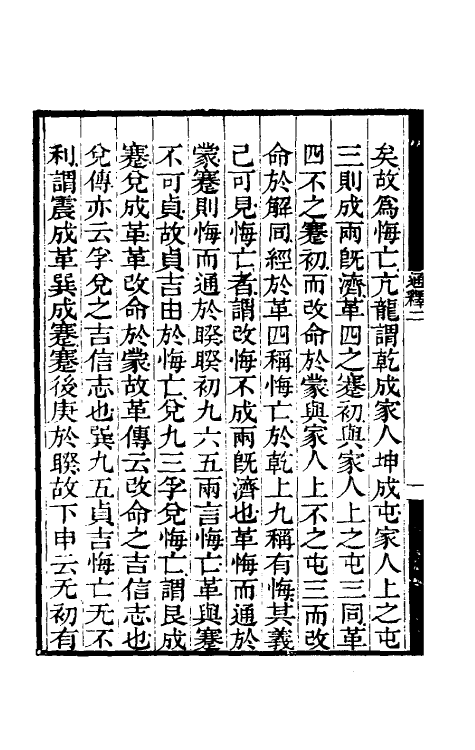 矣故爲悔亡亢龍謂乾成家人坤成屯家人上之屯
三則成兩旣濟革四之蹇初與家人上之屯三同革
四不之蹇初而改命於蒙與家人上不之屯三而改
命於解同經於革四稱悔亡於乾上九稱有悔其義
己可見悔亡者謂改悔不成兩旣濟也革悔而通於
蒙蹇則悔而通於睽睽初九六五兩言悔亡革與蹇
不可貞故貞吉由於悔亡兌九三孚兌悔亡謂艮成
蹇兌成革革改命於蒙故革傳云改命之吉信志也
兌傳亦云孚兌之吉信志也巽九五貞吉悔亡无不
利謂震成革巽成蹇蹇後庚於睽故下申云无初有
通釋二
一